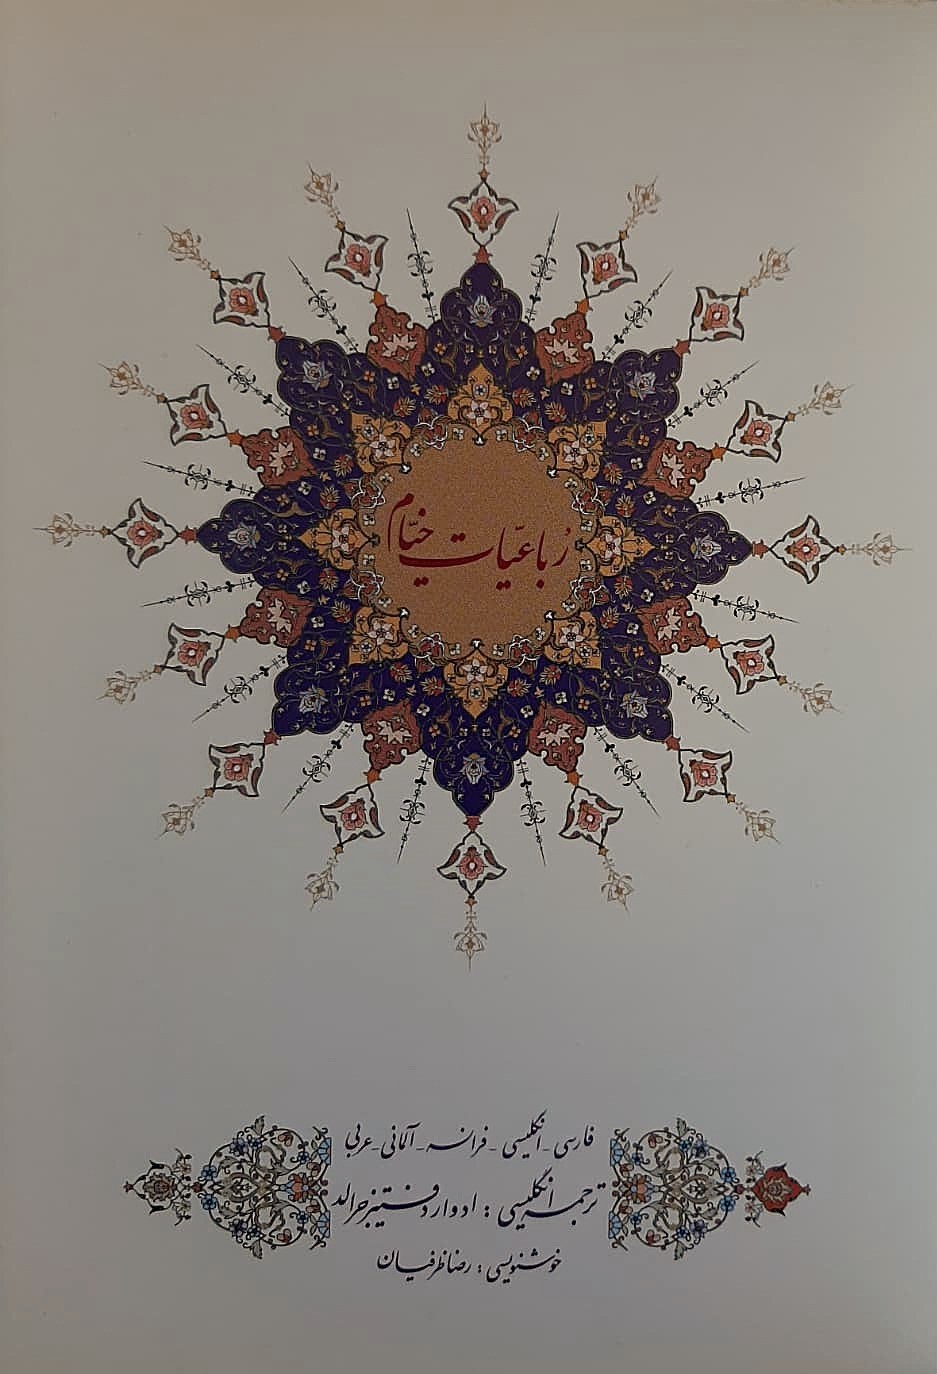 رُباعیّات خیّام
فارسی - انگلیسی - فرانسه - آلمانی - عربی
ترجمه انگلیسی : ادوارد فیتیزجرالد
خوشنویسی : رضا ظرفیان